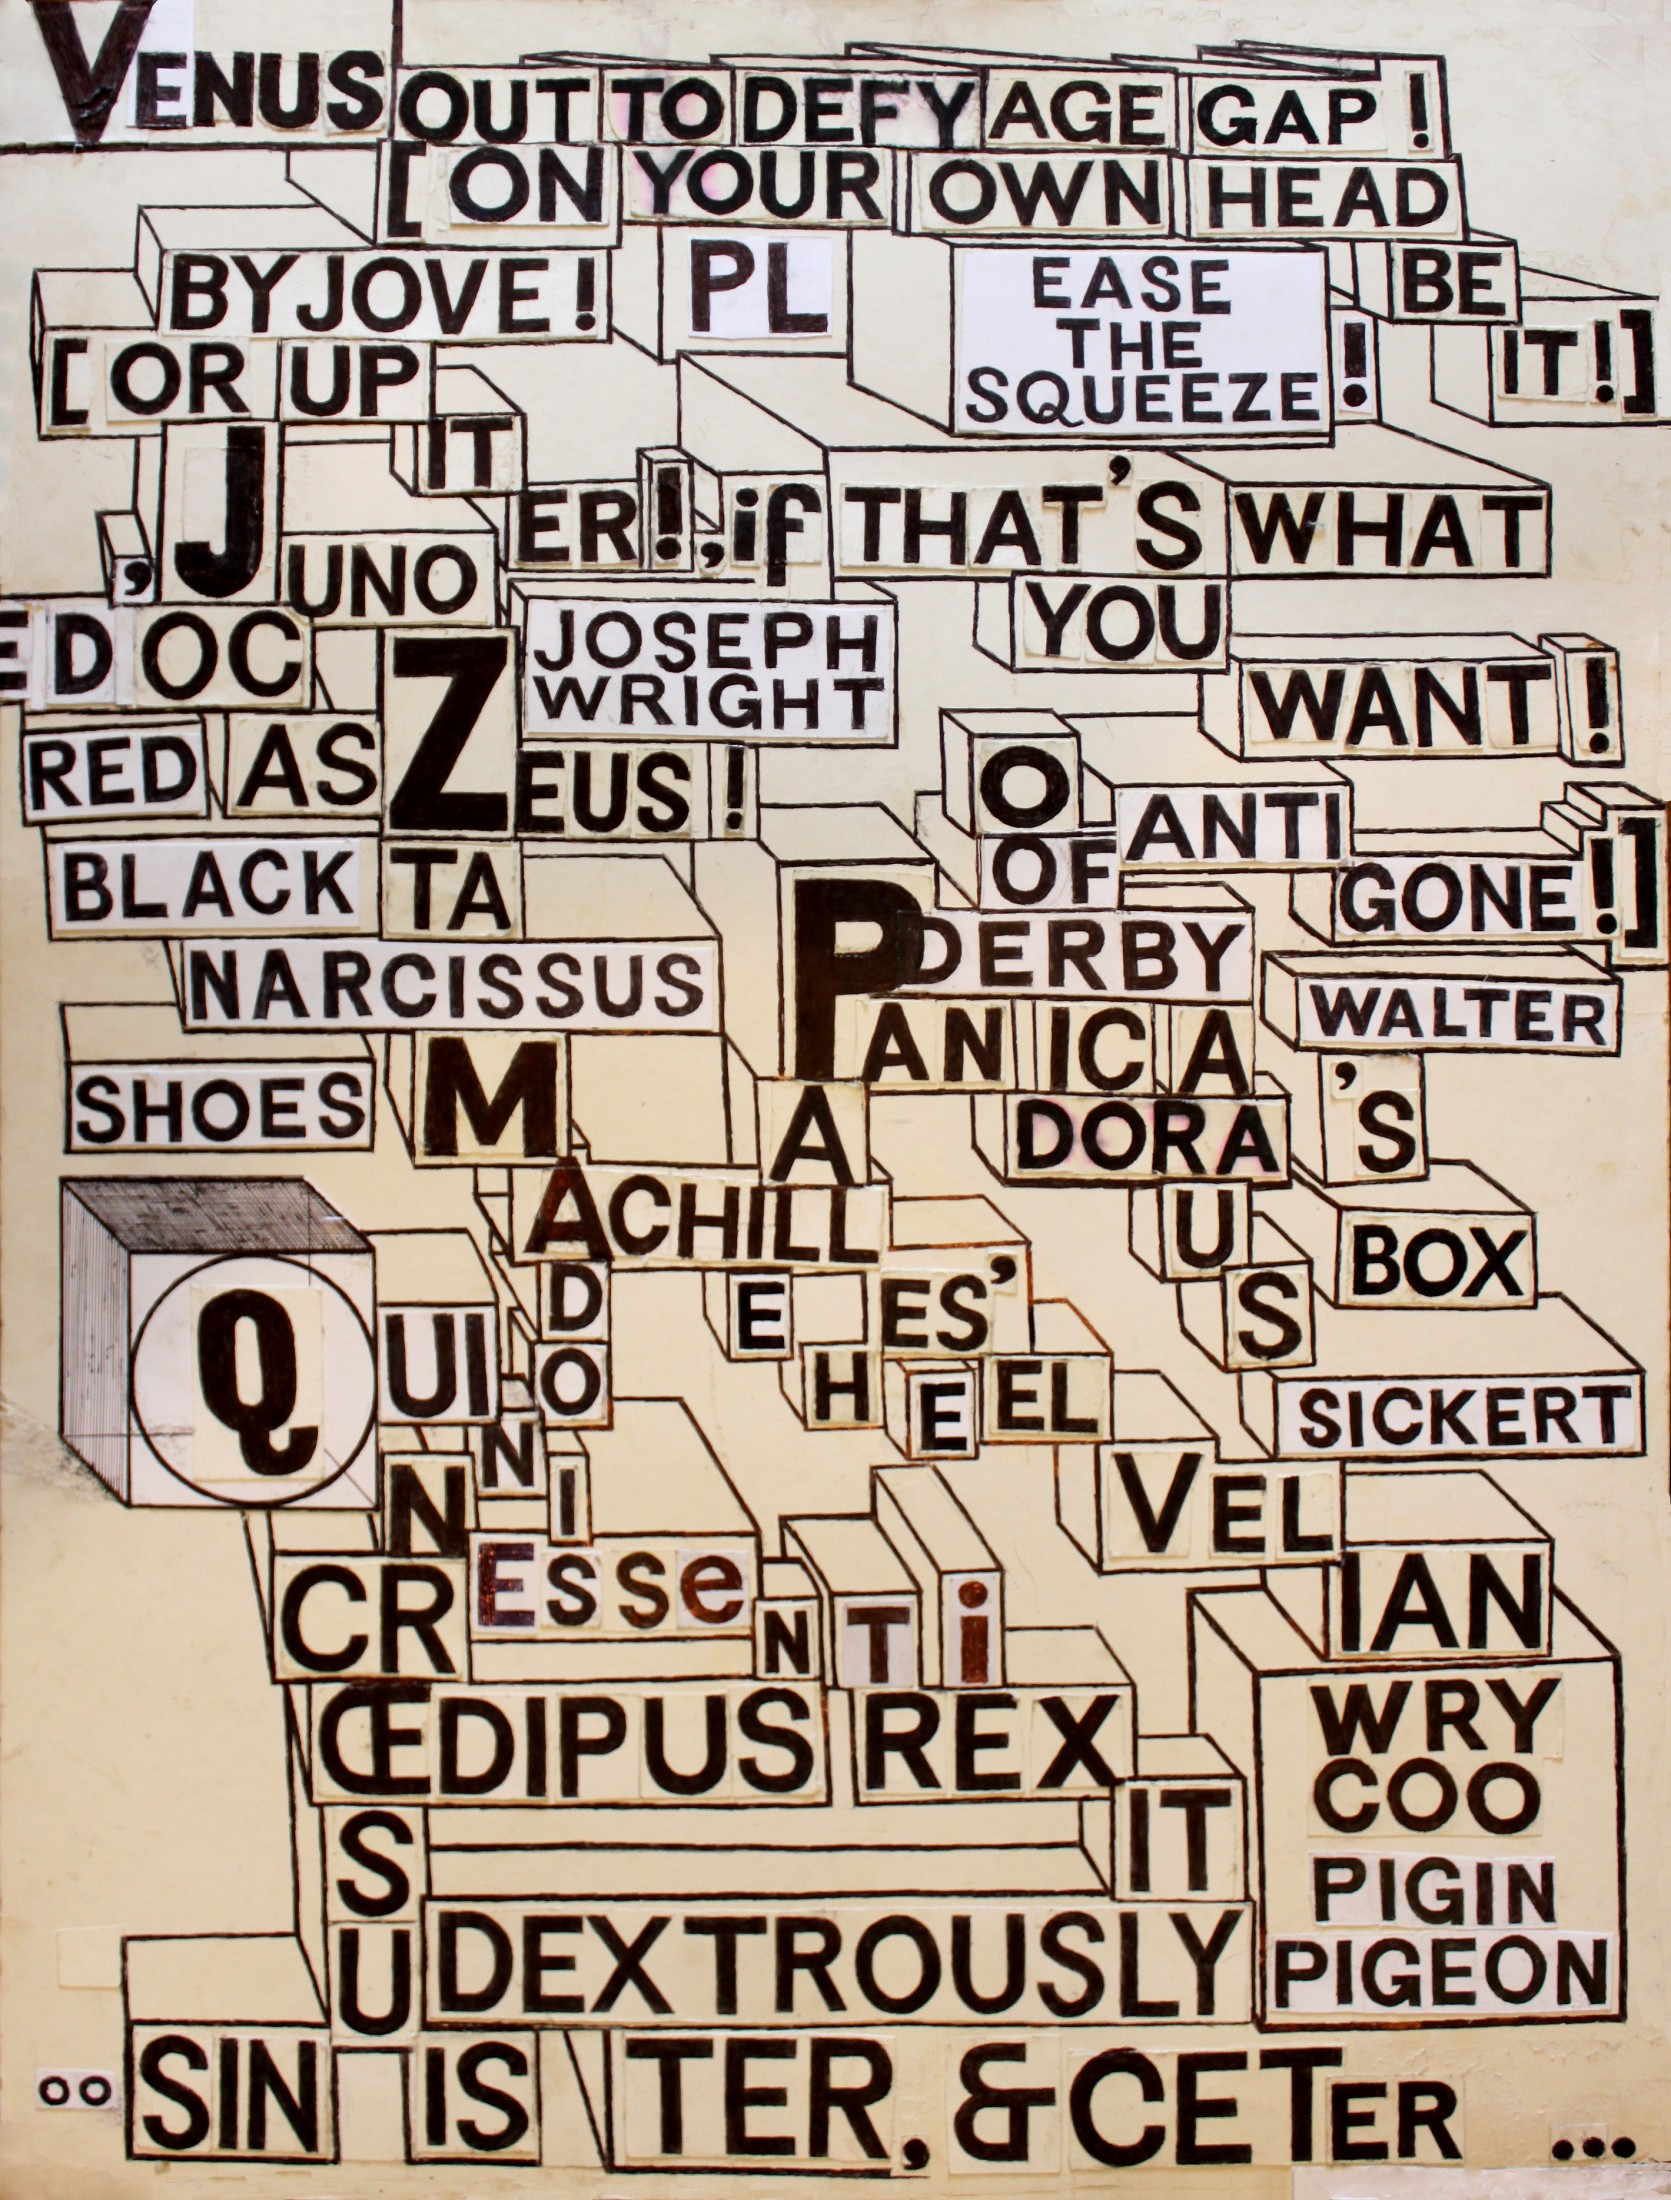 VENUS OUT TO DEFY AGE GAP !
[ ON YOUR OWN HEAD
BY JOVE ! PL EASE BE
THE
SQUEEZE ! IT ! ]
[ OR UP
IT
, J ER ! , if THAT'S WHAT
UNO
JOSEPH YOU
EDOC
WRIGHT WANT !
RED AS ZEUS !
O ANTI
BLACK TA OF GONE ! ]
P DERBY
NARCISSUS WALTER
ANICA
SHOES M A DORA 'S
ACHILL U BOX
Q UI D E ES' S
O H E EL SICKERT
N
N I VEL
CR ESSe N T i IAN
ŒDIPUS REX WRY
COO
S IT PIGIN
U DEXTROUSLY PIGEON
oo SIN IS TER, & CETER ...